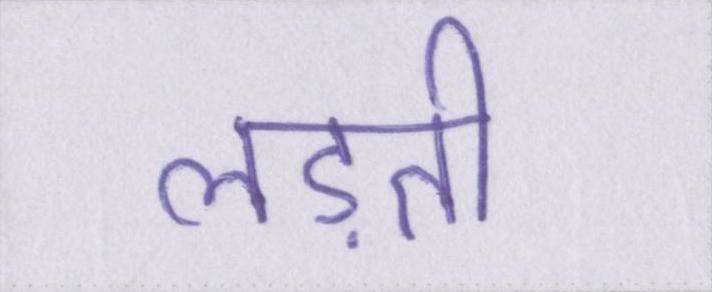 लड़ती